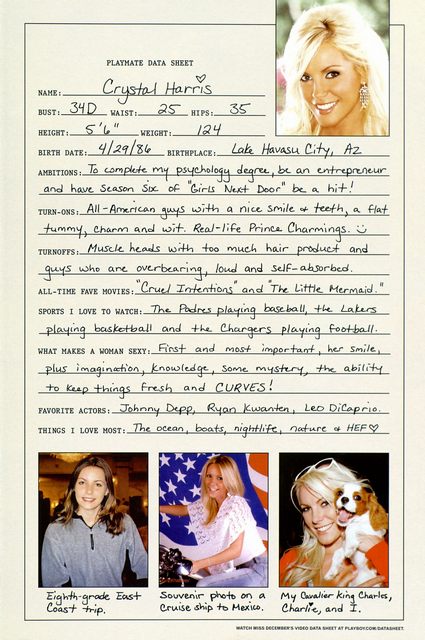 PLAYMATE DATA SHEET
NAME: Crystal Harris
BUST: 34D WAIST: 25 HIPS: 35
HEIGHT: 5'6" WEIGHT: 124
BIRTH DATE: 4/29/86 BIRTHPLACE: Lake Havasu City, AZ
AMBITIONS: To complete my psychology degree, be an entrepreneur
and have Season Six of "Girls Next Door" be a hit!
TURN-ONS: All-American guys with a nice smile & teeth, a flat
tummy, charm and wit. Real-life Prince Charmings. ☺
TURNOFFS: Muscle heads with too much hair product and
guys who are overbearing, loud and self-absorbed.
ALL-TIME FAVE MOVIES: "Cruel Intentions" and "The Little Mermaid."
SPORTS I LOVE TO WATCH: The Padres playing baseball, the Lakers
playing basketball and the Chargers playing football.
WHAT MAKES A WOMAN SEXY: First and most important, her smile,
plus imagination, knowledge, some mystery, the ability
to keep things fresh and CURVES!
FAVORITE ACTORS: Johnny Depp, Ryan Kwanten, Leo DiCaprio.
THINGS I LOVE MOST: The ocean, boats, nightlife, nature & HEF ♡
Eighth-grade East
Coast trip.
Souvenir photo on a
cruise ship to Mexico.
My Cavalier King Charles,
Charlie, and I.
WATCH MISS DECEMBER'S VIDEO DATA SHEET AT PLAYBOY.COM/DATASHEET.